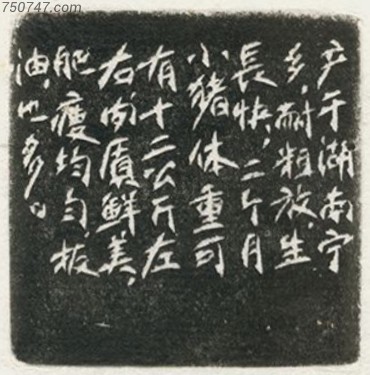 750747.com
产于湖南宁
乡,耐粗放,生
長快,二个月
小豬体重可
有十二公斤左
右,肉质鲜美,
肥瘦均匀,板
油也多。